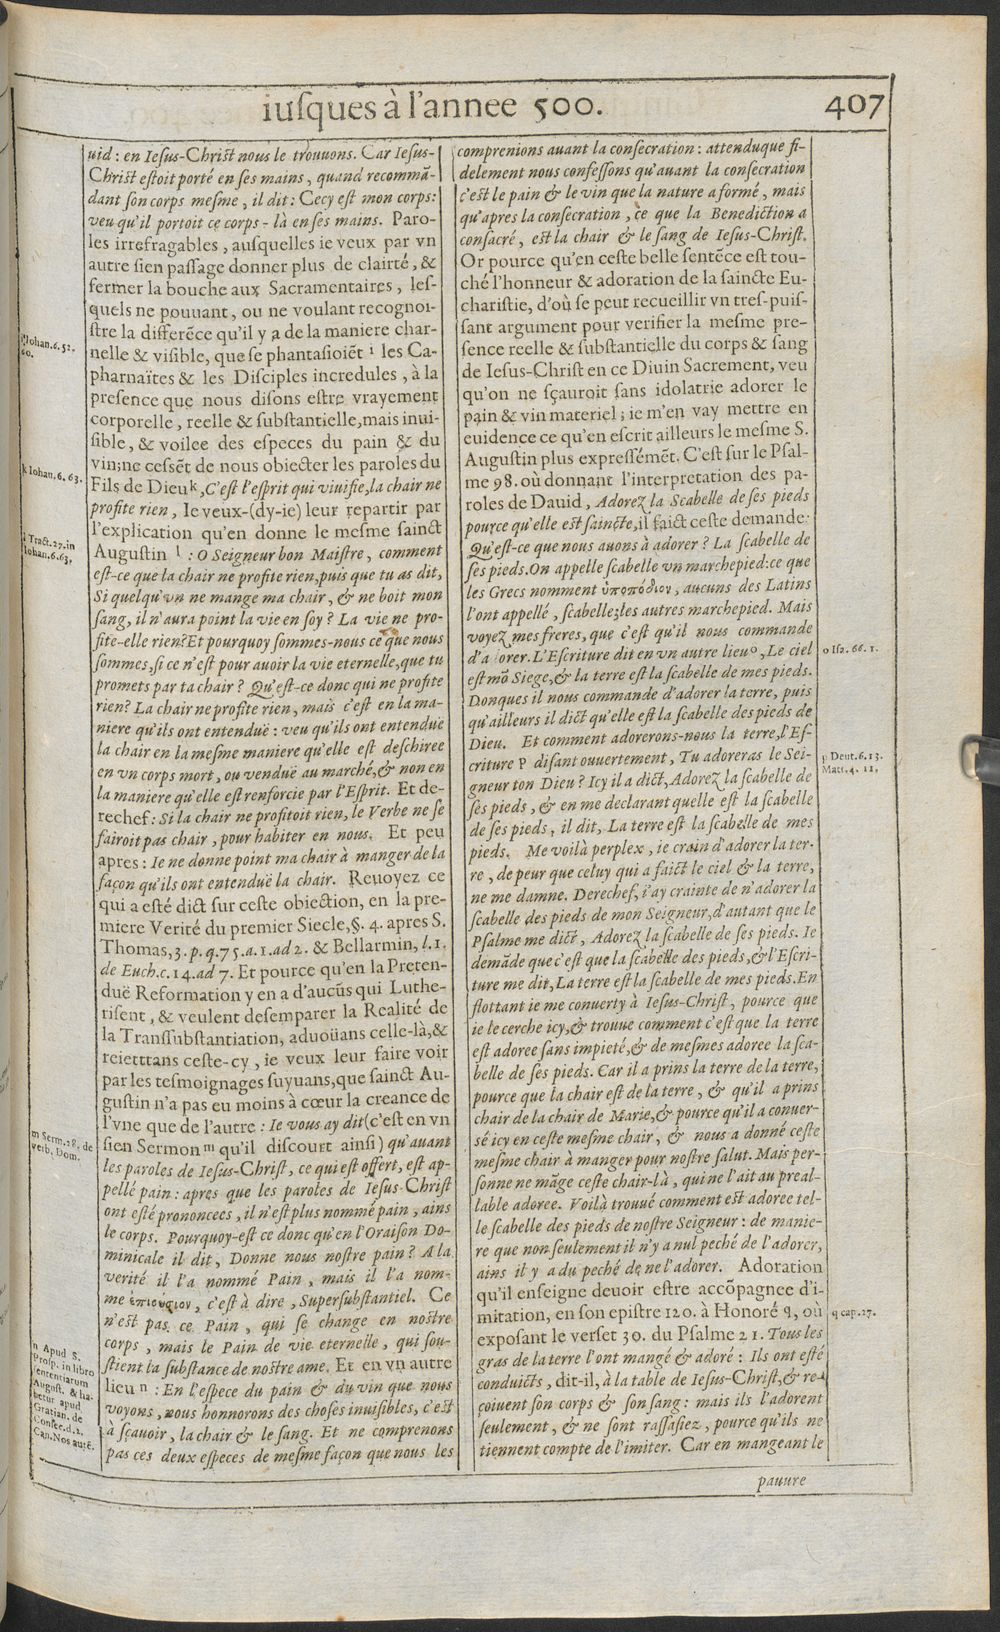 iuſques à l'annee 500.
407
uid : en Ieſus-Chriſt nous le trouuons. Car Ieſus-
Chriſt eſtoit porté en ſes mains, quand recommã-
dant ſon corps meſme, il dit : Cecy eſt mon corps:
veu qu'il portoit ce corps-là en ſes mains. Paro-
les irrefragables, auſquelles ie veux par vn
autre ſien paſſage donner plus de clairté, &
fermer la bouche aux Sacramentaires, leſ-
quels ne pouuant, ou ne voulant recognoi-
ſtre la differẽce qu'il y a de la maniere char-
nelle & viſible, que ſe phantaſioiẽt i les Ca-
pharnaïtes & les Diſciples incredules, à la
preſence que nous diſons eſtre vrayement
corporelle, reelle & ſubſtantielle, mais inui-
ſible, & voilee des eſpeces du pain & du
vin; ne ceſſẽt de nous obiecter les paroles du
Fils de Dieu k, C'eſt l'eſprit qui viuifie, la chair ne
profite rien, Ie veux-(dy-ie) leur repartir par
l'explication qu'en donne le meſme ſainct
Auguſtin l : O Seigneur bon Maiſtre, comment
eſt-ce que la chair ne profite rien, puis que tu as dit,
Si quelqu'vn ne mange ma chair, & ne boit mon
ſang, il n'aura point la vie en ſoy? La vie ne pro-
fite-elle rien? Et pourquoy ſommes-nous ce que nous
ſommes, ſi ce n'eſt pour auoir la vie eternelle, que tu
promets par ta chair? Qu'eſt-ce donc qui ne profite
rien? La chair ne profite rien, mais c'eſt en la ma-
niere qu'ils ont entenduë : veu qu'ils ont entenduë
la chair en la meſme maniere qu'elle eſt deſchiree
en vn corps mort, ou venduë au marché, & non en
la maniere qu'elle eſt renforcie par l'Eſprit. Et de-
rechef : Si la chair ne profitoit rien, le Verbe ne ſe
fairoit pas chair, pour habiter en nous. Et peu
apres : Ie ne donne point ma chair à manger de la
façon qu'ils ont entenduë la chair. Reuoyez ce
qui a eſté dict ſur ceſte obiection, en la pre-
miere Verité du premier Siecle, §. 4. apres S.
Thomas, 3. p. q. 75. a. 1. ad 2. & Bellarmin, l. 1.
de Euch. c. 14. ad 7. Et pource qu'en la Preten-
duë Reformation y en a d'aucũs qui Luthe-
riſent, & veulent deſemparer la Realité de
la Tranſſubſtantiation, aduoüans celle-là, &
reietttans ceſte-cy, ie veux leur faire voir
par les teſmoignages ſuyuans, que ſainct Au-
guſtin n'a pas eu moins à cœur la creance de
l'vne que de l'autre : Ie vous ay dit (c'eſt en vn
ſien Sermon m qu'il diſcourt ainſi) qu'auant
les paroles de Ieſus-Chriſt, ce qui eſt offert, eſt ap-
pellé pain : apres que les paroles de Ieſus-Chriſt
ont eſté prononcees, il n'eſt plus nommé pain, ains
le corps. Pourquoy-eſt ce donc qu'en l'Oraiſon Do-
minicale il dit, Donne nous noſtre pain? A la
verité il l'a nommé Pain, mais il l'a nom-
mé ἐπιούσιον, c'eſt à dire, Superſubſtantiel. Ce
n'eſt pas ce Pain, qui ſe change en noſtre
corps, mais le Pain de vie eternelle, qui ſou-
ſtient la ſubſtance de noſtre ame. Et en vn autre
lieu n : En l'eſpece du pain & du vin que nous
voyons, nous honnorons des choſes inuiſibles, c'eſt
à ſçauoir, la chair & le ſang. Et ne comprenons
pas ces deux eſpeces de meſme façon que nous les
i Iohan. 6. 52.
60.
k Iohan. 6. 63.
l Tract. 27. in
Iohan. 6. 63.
m Serm. 28. de
verb. Dom.
n Apud S.
Proſp. in libro
ſententiarum
Auguſt. & ha-
betur apud
Gratian. de
Conſec. d. 2.
Can. Nos autẽ.
comprenions auant la conſecration : attendu que fi-
delement nous confeſſons qu'auant la conſecration
c'eſt le pain & le vin que la nature a formé, mais
qu'apres la conſecration, ce que la Benediction a
conſacré, eſt la chair & le ſang de Ieſus-Chriſt.
Or pource qu'en ceſte belle ſentẽce eſt tou-
ché l'honneur & adoration de la ſaincte Eu-
chariſtie, d'où ſe peut recueillir vn tres-puiſ-
ſant argument pour verifier la meſme pre-
ſence reelle & ſubſtantielle du corps & ſang
de Ieſus-Chriſt en ce Diuin Sacrement, veu
qu'on ne ſçauroit ſans idolatrie adorer le
pain & vin materiel; ie m'en vay mettre en
euidence ce qu'en eſcrit ailleurs le meſme S.
Auguſtin plus expreſſémẽt. C'eſt ſur le Pſal-
me 98. où donnant l'interpretation des pa-
roles de Dauid, Adorez la Scabelle de ſes pieds
pource qu'elle eſt ſaincte, il faict ceſte demande:
Qu'eſt-ce que nous auons à adorer? La ſcabelle de
ſes pieds. On appelle ſcabelle vn marchepied: ce que
les Grecs nomment ὑποπόδιον, aucuns des Latins
l'ont appellé, ſcabelle; les autres marchepied. Mais
voyez mes freres, que c'eſt qu'il nous commande
d'a orer. L'Eſcriture dit en vn autre lieu o, Le ciel
eſt mõ Siege, & la terre eſt la ſcabelle de mes pieds.
Donques il nous commande d'adorer la terre, puis
qu'ailleurs il dict qu'elle eſt la ſcabelle des pieds de
Dieu. Et comment adorerons-nous la terre, l'Eſ-
criture p diſant ouuertement, Tu adoreras le Sei-
gneur ton Dieu? Icy il a dict, Adorez la ſcabelle de
ſes pieds, & en me declarant quelle eſt la ſcabelle
de ſes pieds, il dit, La terre eſt la ſcabelle de mes
pieds. Me voilà perplex, ie crain d'adorer la ter-
re, de peur que celuy qui a faict le ciel & la terre,
ne me damne. Derechef, i'ay crainte de n'adorer la
ſcabelle des pieds de mon Seigneur, d'autant que le
Pſalme me dict, Adorez la ſcabelle de ſes pieds. Ie
demãde que c'eſt que la ſcabelle des pieds, & l'Eſcri-
ture me dit, La terre eſt la ſcabelle de mes pieds. En
flottant ie me conuerty à Ieſus-Chriſt, pource que
ie le cerche icy, & trouue comment c'eſt que la terre
eſt adoree ſans impieté, & de meſmes adoree la ſca-
belle de ſes pieds. Car il a prins la terre de la terre,
pource que la chair eſt de la terre, & qu'il a prins
chair de la chair de Marie, & pource qu'il a conuer-
sé icy en ceſte meſme chair, & nous a donné ceſte
meſme chair à manger pour noſtre ſalut. Mais per-
ſonne ne mãge ceſte chair-là, qui ne l'ait au preal-
lable adoree. Voilà trouué comment eſt adoree tel-
le ſcabelle des pieds de noſtre Seigneur : de manie-
re que non ſeulement il n'y a nul peché de l'adorer,
ains il y a du peché de ne l'adorer. Adoration
qu'il enſeigne deuoir eſtre accõpagnee d'i-
mitation, en ſon epiſtre 120. à Honoré q, où
expoſant le verſet 30. du Pſalme 21. Tous les
gras de la terre l'ont mangé & adoré : Ils ont eſté
conduicts, dit-il, à la table de Ieſus-Chriſt, & re-
çoiuent ſon corps & ſon ſang : mais ils l'adorent
ſeulement, & ne ſont raſſaſiez, pource qu'ils ne
tiennent compte de l'imiter. Car en mangeant le
o Iſa. 66. 1.
p Deut. 6. 13.
Matt. 4. 11.
q cap. 27.
pauure